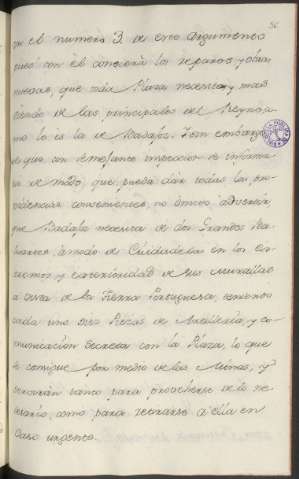 en el numero 3 de este Argumento
pues con el conocerá los reparos, y obras
nuevas, que más Plaza necesita, y mas
siendo de las principales del Reyno, co
mo lo es la de Badajoz. Y sin embargo
de que con semejante inspeccion se informa
rá de modo, que pueda dar todas las pro
videncias convenientes, no omito, advertir,
que Badajoz necesita de dos Grandes Ba
luartes, a modo de Ciudadelas en los Ex
tremos, y exterioridad de sus murallas
a vista de la Tierra Portuguesa, teniendo
cada uno Diez Piezas de Artilleria, y co
municacion Secreta con la Plaza, lo que
se consigue por medio de las Minas, y
servirán tanto para proveherse de lo ne
cesario, como para retirarse a ella en
Caso urgente.